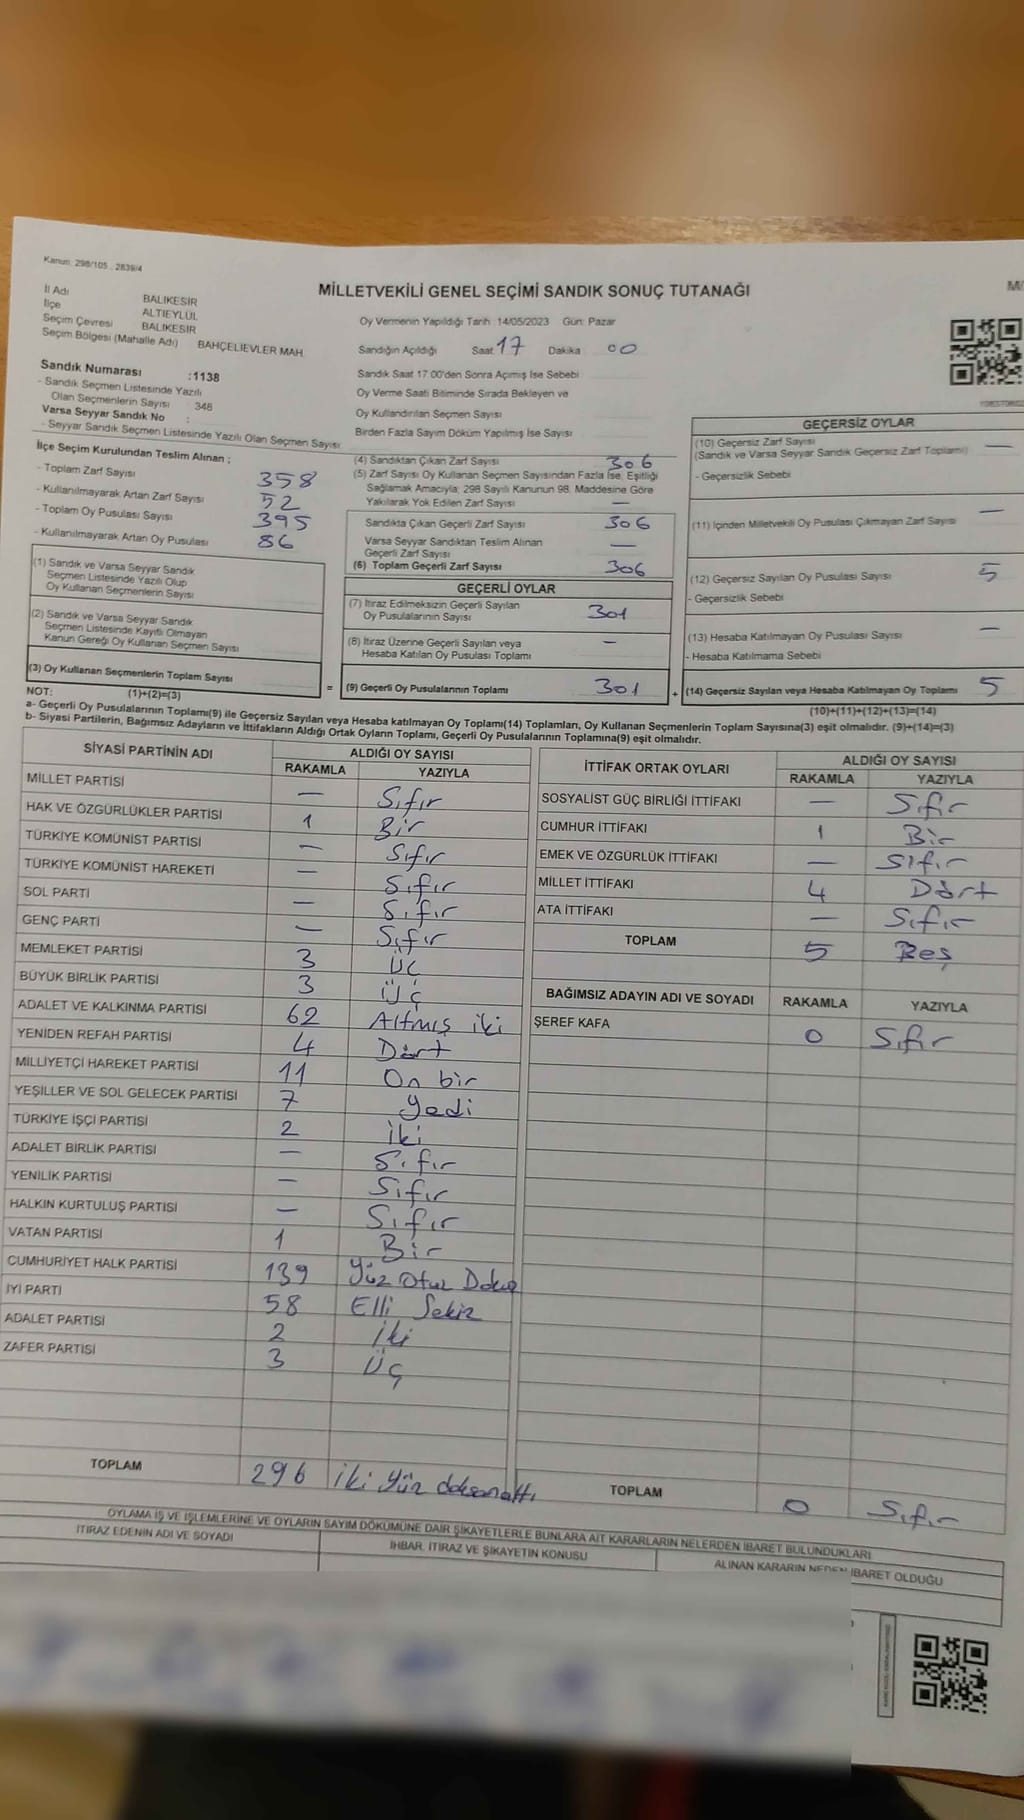 Kanun: 298/105 , 2839/4
MİLLETVEKİLİ GENEL SEÇİMİ SANDIK SONUÇ TUTANAĞI
M/
İl Adı BALIKESİR
İlçe ALTIEYLÜL
Seçim Çevresi BALIKESİR
Seçim Bölgesi (Mahalle Adı) BAHÇELİEVLER MAH.
Sandık Numarası :1138
- Sandık Seçmen Listesinde Yazılı
Olan Seçmenlerin Sayısı : 348
Varsa Seyyar Sandık No :
- Seyyar Sandık Seçmen Listesinde Yazılı Olan Seçmen Sayısı
Oy Vermenin Yapıldığı Tarih :14/05/2023 Gün: Pazar
Sandığın Açıldığı Saat 17 Dakika 00
Sandık Saat 17:00'den Sonra Açımış İse Sebebi
Oy Verme Saati Bitiminde Sırada Bekleyen ve
Oy Kullandırılan Seçmen Sayısı
Birden Fazla Sayım Döküm Yapılmış İse Sayısı
İlçe Seçim Kurulundan Teslim Alınan ;
- Toplam Zarf Sayısı 358
- Kullanılmayarak Artan Zarf Sayısı 52
- Toplam Oy Pusulası Sayısı 395
- Kullanılmayarak Artan Oy Pusulası 86
(1) Sandık ve Varsa Seyyar Sandık
Seçmen Listesinde Yazılı Olup
Oy Kullanan Seçmenlerin Sayısı
(2) Sandık ve Varsa Seyyar Sandık
Seçmen Listesinde Kayıtlı Olmayan
Kanun Gereği Oy Kullanan Seçmen Sayısı
(3) Oy Kullanan Seçmenlerin Toplam Sayısı
(1)+(2)=(3)
(4) Sandıktan Çıkan Zarf Sayısı 306
(5) Zarf Sayısı Oy Kullanan Seçmen Sayısından Fazla İse, Eşitliği
Sağlamak Amacıyla; 298 Sayılı Kanunun 98. Maddesine Göre
Yakılarak Yok Edilen Zarf Sayısı —
Sandıkta Çıkan Geçerli Zarf Sayısı 306
Varsa Seyyar Sandıktan Teslim Alınan
Geçerli Zarf Sayısı —
(6) Toplam Geçerli Zarf Sayısı 306
GEÇERLİ OYLAR
(7) İtiraz Edilmeksizin Geçerli Sayılan
Oy Pusulalarının Sayısı 301
(8) İtiraz Üzerine Geçerli Sayılan veya
Hesaba Katılan Oy Pusulası Toplamı —
= (9) Geçerli Oy Pusulalarının Toplamı 301 +
GEÇERSİZ OYLAR
(10) Geçersiz Zarf Sayısı —
(Sandık ve Varsa Seyyar Sandık Geçersiz Zarf Toplamı)
- Geçersizlik Sebebi
(11) İçinden Milletvekili Oy Pusulası Çıkmayan Zarf Sayısı —
(12) Geçersiz Sayılan Oy Pusulası Sayısı 5
- Geçersizlik Sebebi
(13) Hesaba Katılmayan Oy Pusulası Sayısı —
- Hesaba Katılmama Sebebi
(14) Geçersiz Sayılan veya Hesaba Katılmayan Oy Toplamı 5
(10)+(11)+(12)+(13)=(14)
NOT:
a- Geçerli Oy Pusulalarının Toplamı(9) ile Geçersiz Sayılan veya Hesaba katılmayan Oy Toplamı(14) Toplamları, Oy Kullanan Seçmenlerin Toplam Sayısına(3) eşit olmalıdır. (9)+(14)=(3)
b- Siyasi Partilerin, Bağımsız Adayların ve İttifakların Aldığı Ortak Oyların Toplamı, Geçerli Oy Pusulalarının Toplamına(9) eşit olmalıdır.
SİYASİ PARTİNİN ADI ALDIĞI OY SAYISI
RAKAMLA YAZIYLA
MİLLET PARTİSİ — Sıfır
HAK VE ÖZGÜRLÜKLER PARTİSİ 1 Bir
TÜRKİYE KOMÜNİST PARTİSİ — Sıfır
TÜRKİYE KOMÜNİST HAREKETİ — Sıfır
SOL PARTİ — Sıfır
GENÇ PARTİ — Sıfır
MEMLEKET PARTİSİ 3 Üç
BÜYÜK BİRLİK PARTİSİ 3 Üç
ADALET VE KALKINMA PARTİSİ 62 Altmış iki
YENİDEN REFAH PARTİSİ 4 Dört
MİLLİYETÇİ HAREKET PARTİSİ 11 On bir
YEŞİLLER VE SOL GELECEK PARTİSİ 7 Yedi
TÜRKİYE İŞÇİ PARTİSİ 2 İki
ADALET BİRLİK PARTİSİ — Sıfır
YENİLİK PARTİSİ — Sıfır
HALKIN KURTULUŞ PARTİSİ — Sıfır
VATAN PARTİSİ 1 Bir
CUMHURİYET HALK PARTİSİ 139 Yüz Otuz Dokuz
İYİ PARTİ 58 Elli Sekiz
ADALET PARTİSİ 2 İki
ZAFER PARTİSİ 3 Üç
TOPLAM 296 İki Yüz doksanaltı
İTTİFAK ORTAK OYLARI ALDIĞI OY SAYISI
RAKAMLA YAZIYLA
SOSYALİST GÜÇ BİRLİĞİ İTTİFAKI — Sıfır
CUMHUR İTTİFAKI 1 Bir
EMEK VE ÖZGÜRLÜK İTTİFAKI — Sıfır
MİLLET İTTİFAKI 4 Dört
ATA İTTİFAKI — Sıfır
TOPLAM 5 Beş
BAĞIMSIZ ADAYIN ADI VE SOYADI RAKAMLA YAZIYLA
ŞEREF KAFA 0 Sıfır
TOPLAM 0 Sıfır
OYLAMA İŞ VE İŞLEMLERİNE VE OYLARIN SAYIM DÖKÜMÜNE DAİR ŞİKAYETLERLE BUNLARA AİT KARARLARIN NELERDEN İBARET BULUNDUKLARI
İTİRAZ EDENİN ADI VE SOYADI İHBAR, İTİRAZ VE ŞİKAYETİN KONUSU ALINAN KARARIN NEDEN İBARET OLDUĞU